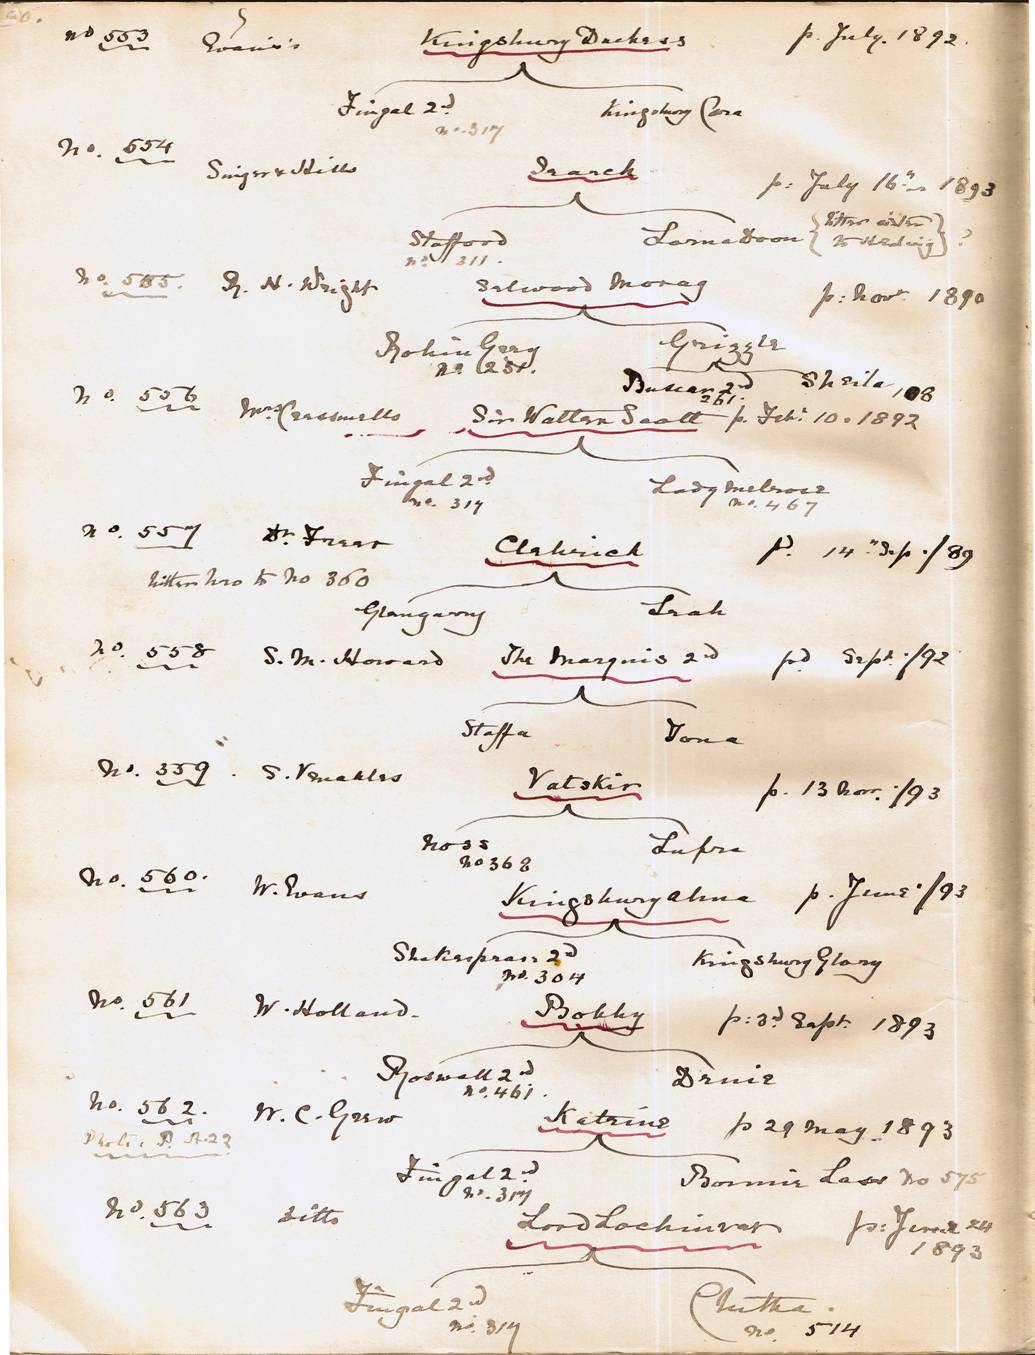 no 553 Evans's Kingsbury Duchess p. July. 1892.
Fingal 2nd Kingsbury Cara
no. 317
No. 554
Singer & Hills p: July 16th 1893
Stafford Lorna Doon litter sister to Hedwig ?
no. 311.
No. 555. R. H. Wright Selwood Morag p: Novr 1890
Robin Gray Grizzle
no. 231.
Buscar 2nd Sheila 108
261.
No. 556 Mrs Cresswells Sir Walter Scott p. Feb: 10. 1892
Fingal 2nd Lady Melrose
no. 317 no. 467
No. 557 Dr. Frear p. 14th Sep. /89
litter bro to No 360
Glengarry Leah
No. 558 S. M. Howard The Marquis 2nd pd Sept. /92
Staffa Iona
No. 559. S. Venables Vatskir p. 13 Nov. /93
Noss Lufra
No 368
No. 560. W. Evans Kingsbury Alma p. June. /93
Shakespeare 2nd Kingsbury Glory
No. 304
No. 561 W. Holland. Bobby p: 3d Sept. 1893
Roswell 2nd
No. 461.
No. 562. W. C. Grew Katrine p 29 May 1893
Photo: P. A. 22
Fingal 2nd Bonnie Lass No 575
No. 317
No. 563 ditto Lord Lochinvar p: June 24
1893
Fingal 2nd Clutha.
no. 317 no. 514